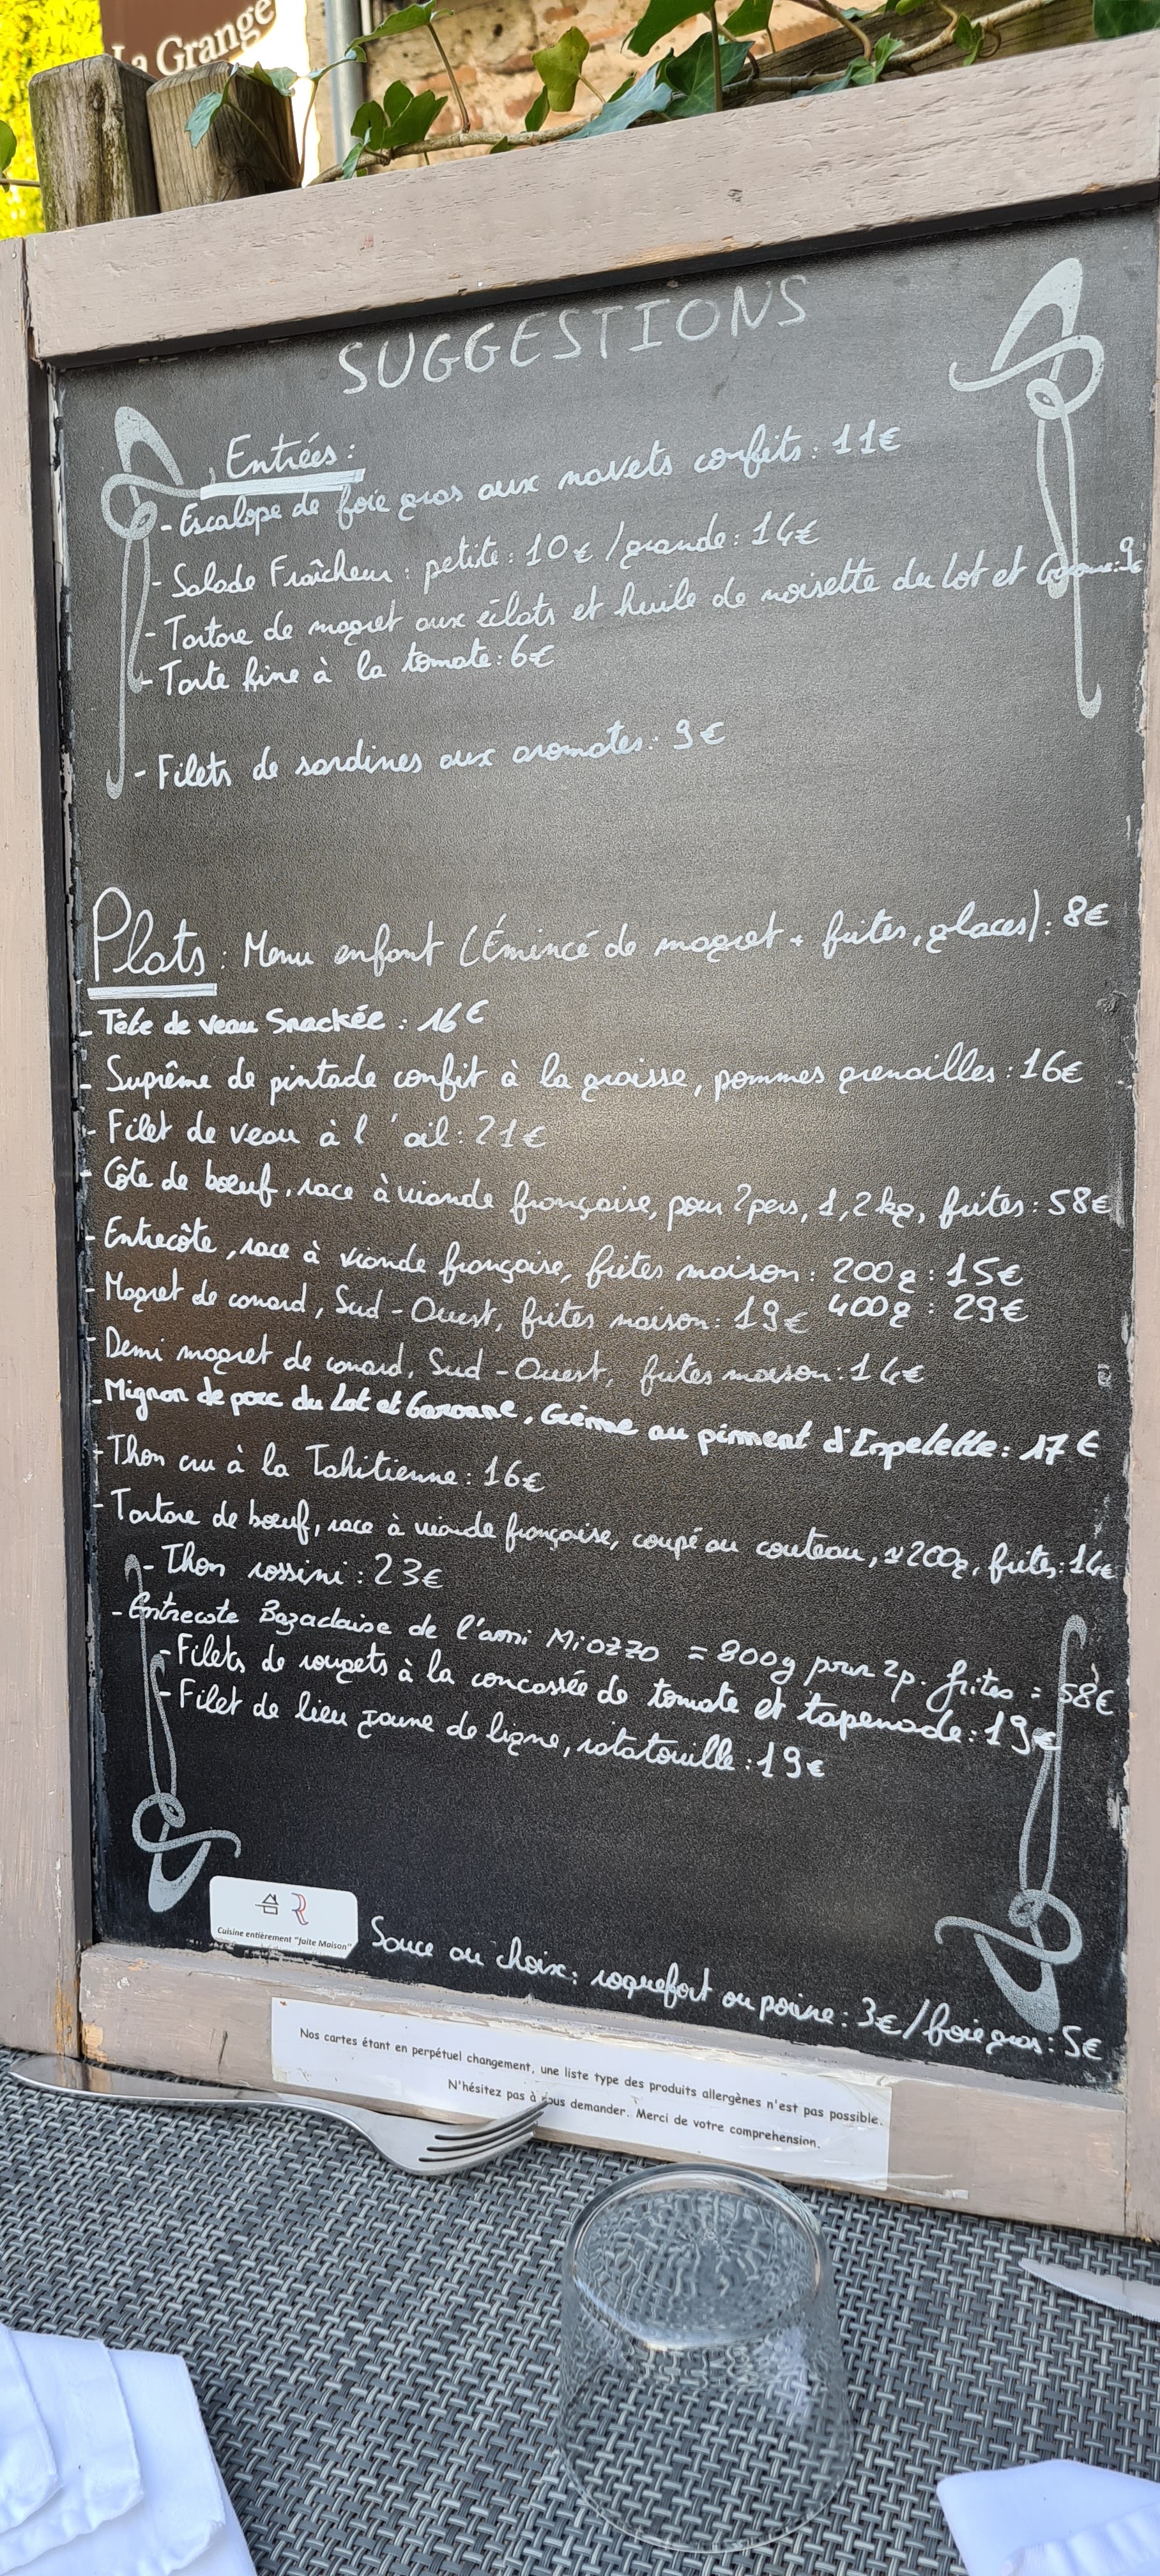 La Grange
SUGGESTIONS
Entrées :
- Escalope de foie gras aux navets confits : 11€
- Salade Fraîcheur : petite : 10€ / grande : 14€
- Tartare de magret aux éclats et huile de noisette du Lot et Garonne : 9€
- Tarte fine à la tomate : 6€
- Filets de sardines aux aromates : 9€
Plats : Menu enfant (Émincé de magret + frites, glaces) : 8€
- Tête de veau Snackée : 16€
- Suprême de pintade confit à la graisse, pommes grenailles : 16€
- Filet de veau à l'ail : 21€
- Côte de bœuf, race à viande française, pour 2 pers, 1,2 kg, frites : 58€
- Entrecôte, race à viande française, frites maison : 200g : 15€
400g : 29€
- Magret de canard, Sud-Ouest, frites maison : 19€
- Demi magret de canard, Sud-Ouest, frites maison : 14€
- Mignon de porc du Lot et Garonne, Crème au piment d'Espelette : 17€
- Thon cru à la Tahitienne : 16€
- Tartare de bœuf, race à viande française, coupé au couteau, ≈200g, frites : 14€
- Thon rossini : 23€
- Entrecote Bazadaise de l'ami Miozzo = 800g pour 2p. frites = 58€
- Filets de rougets à la concassée de tomate et tapenade : 19€
- Filet de lieu jaune de ligne, ratatouille : 19€
Cuisine entièrement "faite Maison"
Sauce au choix : roquefort ou poivre : 3€ / foie gras : 5€
Nos cartes étant en perpétuel changement, une liste type des produits allergènes n'est pas possible.
N'hésitez pas à nous demander. Merci de votre comprehension.